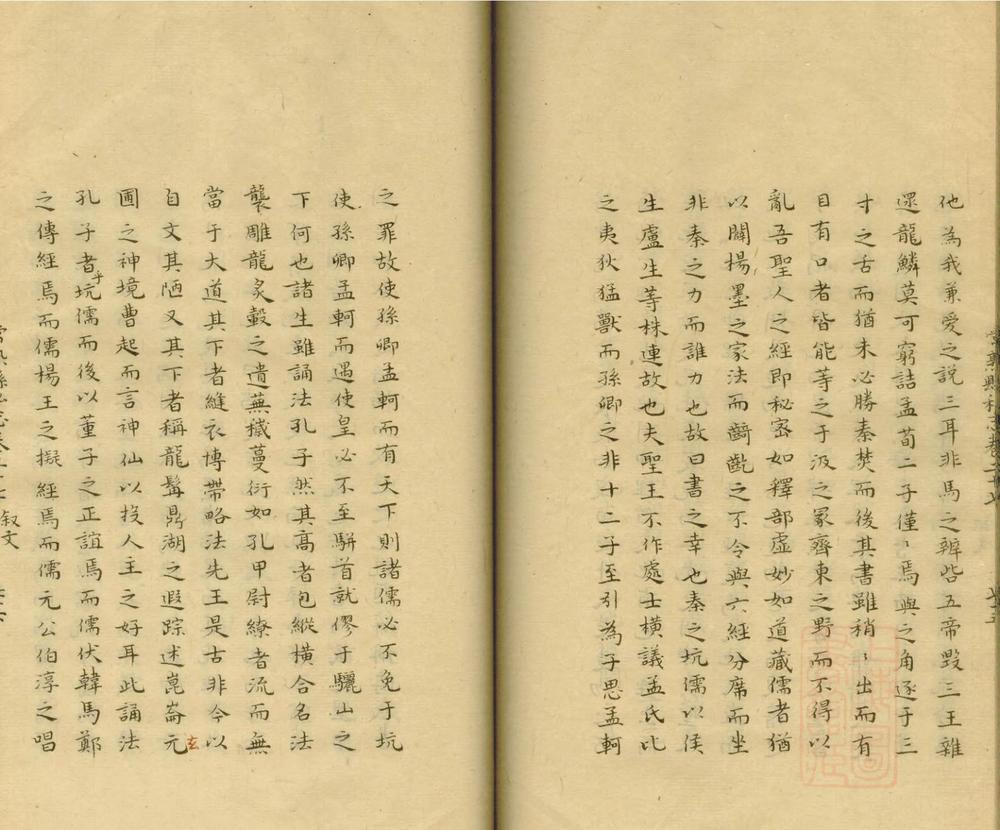 他為我兼愛之說三耳非馬之辨呰五帝毀三王雜
還龍鱗莫可窮詰孟荀二子僅〻焉與之角逐于三
寸之舌而猶未必勝秦焚而後其書雖稍〻出而有
目有口者皆能等之于汲之冢齊東之野而不得以
亂吾聖人之經即秘密如釋部虛妙如道藏儒者猶
以闢楊墨之家法而齮齕之不令與六經分席而坐
非秦之力而誰力也故曰書之幸也秦之坑儒以侯
生盧生等株連故也夫聖王不作處士橫議孟氏比
之夷狄猛獸而孫卿之非十二子至引為子思孟軻
之罪故使孫卿孟軻而有天下則諸儒必不免于坑
使孫卿孟軻而遇使皇必不至駢首就僇于驪山之
下何也諸生雖誦法孔子然其高者包縱橫合名法
襲雕龍炙轂之遺蕪穢蔓衍如孔甲尉繚者流而無
當于大道其下者縫衣博帶略法先王是古非今以
自文其陋又其下者稱龍髯鼎湖之遐踪述崑崙元
玄
圃之神境曹起而言神仙以投人主之好耳此誦法
孔子者乎坑儒而後以董子之正誼焉而儒伏韓馬鄭
之傳經焉而儒揚王之擬經焉而儒元公伯淳之唱
叙文